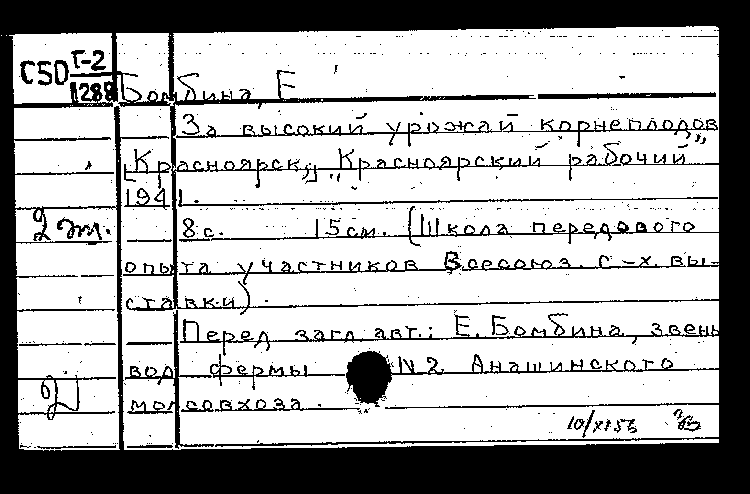 С50 Г-2
1288
Бомбина, Е
За высокий урожай корнеплодов
[Красноярск,] „Красноярский рабочий”
1941.
2 эт. 8с. 15см. (Школа передового
опыта участников Всесоюз. с-х. вы-
ставки).
Перед загл. авт.: Е. Бомбина, звень
вод фермы N2 Анашинского
молсовхоза.
10/XI 53